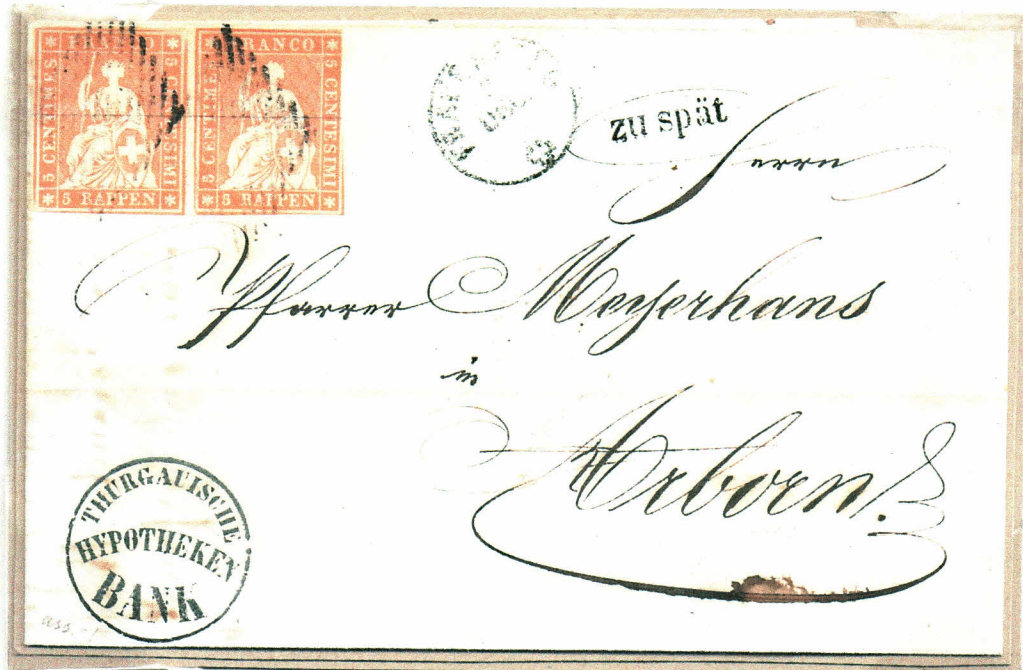 FRANCO
5 CENTIMES
5 CENTESIMI
5 RAPPEN
FRANCO
5 CENTIMES
5 CENTESIMI
5 RAPPEN
zu spät
Herrn
Pfarrer Meyerhans
in
Arbon.
THURGAUISCHE
HYPOTHEKEN
BANK